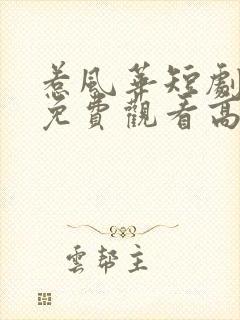 惹風華短劇
免費觀看高
雲幫主